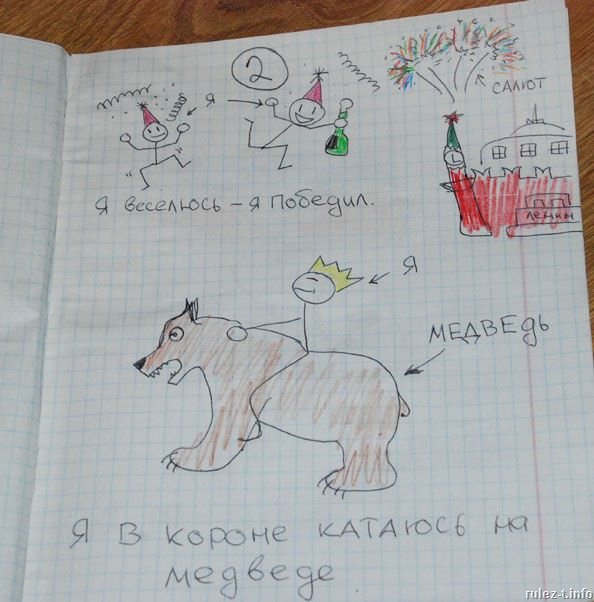 2
САЛЮТ
Я
Я веселюсь – я победил.
ЛЕНИН
Я
МЕДВЕДЬ
Я В короне КАТАЮСЬ на
медведе
rulez-t.info